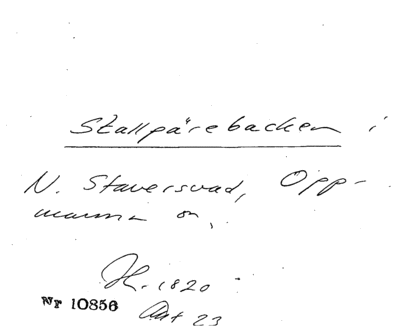 Stallpärebacken i
N. Staversvad, Opp-
manna sn.
H. 1820
Nr 10856 Akt 23